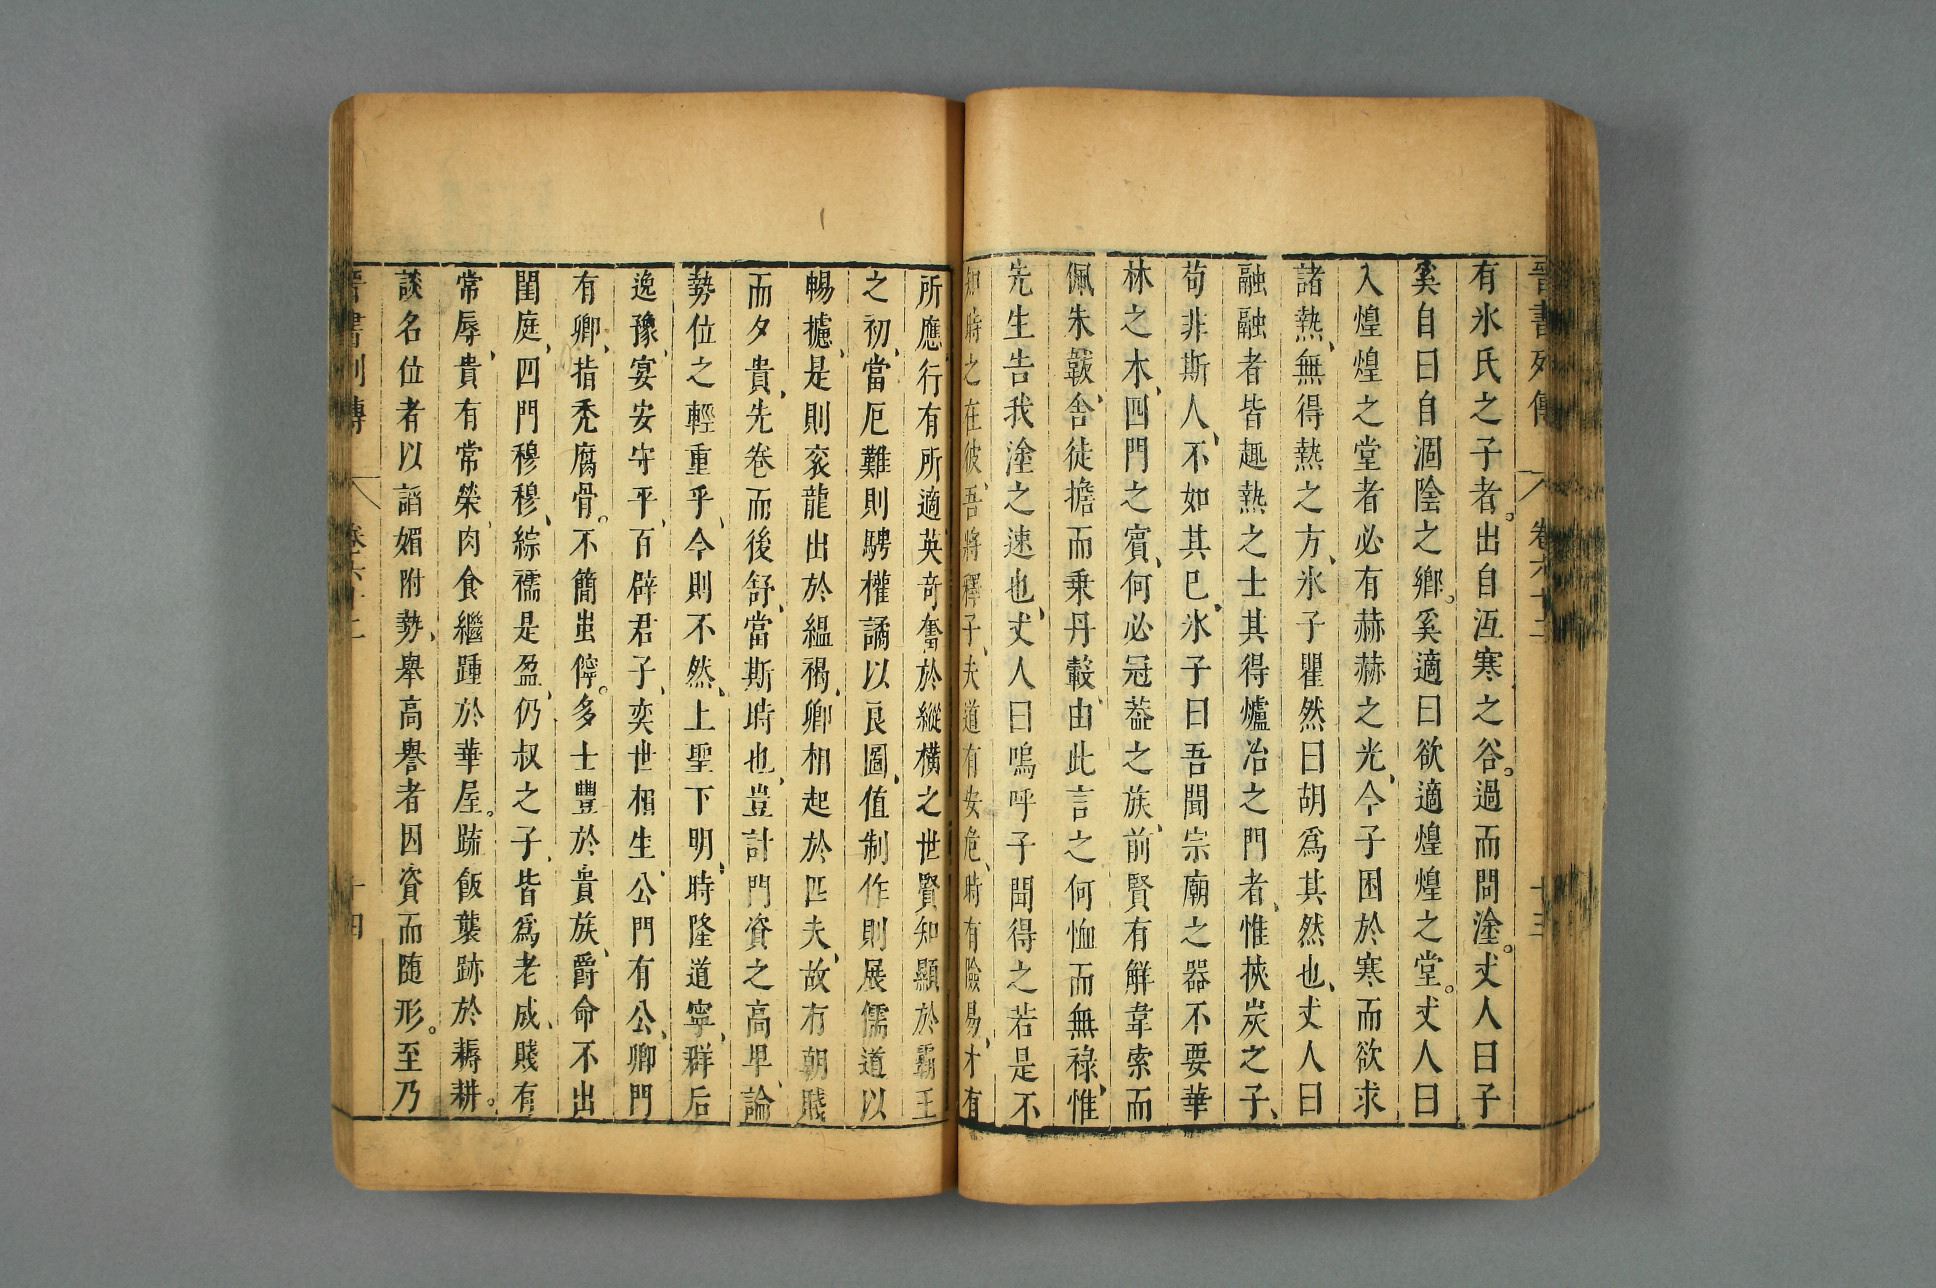 晉書列傳 卷六十二 十三
有氷氏之子者出自沍寒之谷過而問塗丈人曰子
奚自曰自涸陰之鄉奚適曰欲適煌煌之堂丈人曰
入煌煌之堂者必有赫赫之光今子困於寒而欲求
諸熱無得熱之方氷子瞿然曰胡爲其然也丈人曰
融融者皆趣熱之士其得爐冶之門者惟挾炭之子
苟非斯人不如其已氷子曰吾聞宗廟之器不要華
林之木四門之賓何必冠葢之族前賢有解韋索而
佩朱韍舍徒擔而乗丹轂由此言之何恤而無祿惟
先生告我塗之速也丈人曰嗚呼子聞得之若是不
知時之在彼吾將釋子夫道有安危時有險易才有
所應行有所適英奇奮於縱橫之世賢知顯於霸王
之初當厄難則騁權譎以良圖值制作則展儒道以
暢攄是則衮龍出於緼褐卿相起於匹夫故有朝賤
而夕貴先卷而後舒當斯時也豈計門資之高卑論
勢位之輕重乎今則不然上聖下明時隆道寧群后
逸豫宴安守平百辟君子奕世相生公門有公卿門
有卿指禿腐骨不簡蚩儜多士豐於貴族爵命不出
閨庭四門穆穆綜襦是盈仍叔之子皆爲老成賤有
常辱貴有常榮肉食繼踵於華屋疏飯襲跡於耨耕
談名位者以謟媚附勢舉高譽者因資而随形至乃
晉書列傳 卷六十二 十四